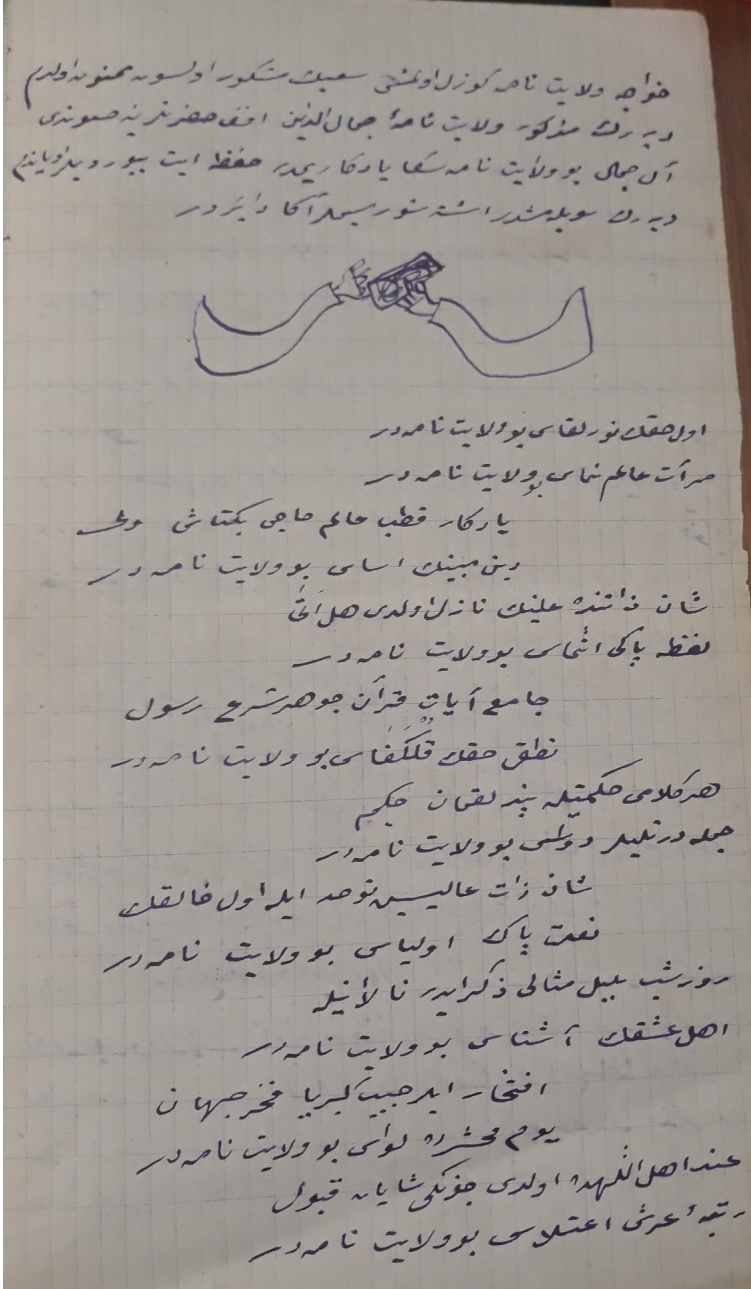 خواجه ولایت نامه کوزل اولمش سعیك مشکور اولسون ممنون اولدم
دیه رك مذکور ولایت نامهٔ جمال الدین افندی حضرتلرینه صوندی
آل جمال بو ولایت نامه سکا یادکاریمدر حفظ ایت بیوردیلر
دیه رك سویلمشدر اشته شو رسملر آکا دائردر
اول حقك نور لقاسی بو ولایت نامه در
مرآت عالم نماسی بو ولایت نامه در
یادکار قطب عالم حاجی بکتاش ولی
دین مبینك اساسی بو ولایت نامه در
شان ذاتنده علینك نازل اولدی هل اتی
نقطه پاکی انماسی بو ولایت نامه در
جامع آیات قرآن جوهر شرع رسول
نطق حقك قلکفاسی بو ولایت نامه در
هر کلامی حکمتیله پند لقمان حکیم
جمله دردلیلر دواسی بو ولایت نامه در
شان ذات عالیسین توحد ایله اول خالقك
نعت پاك اولیاسی بو ولایت نامه در
روز شب بلبل مثالی ذکر ایدر نالانیله
اهل عشقك آشناسی بو ولایت نامه در
افتخار ایلر حبیب کبریا فخر جهان
یوم محشرده لواسی بو ولایت نامه در
عند اهل اللهده اولدی چونکی شایان قبول
رتبهٔ عرش اعتلاسی بو ولایت نامه در